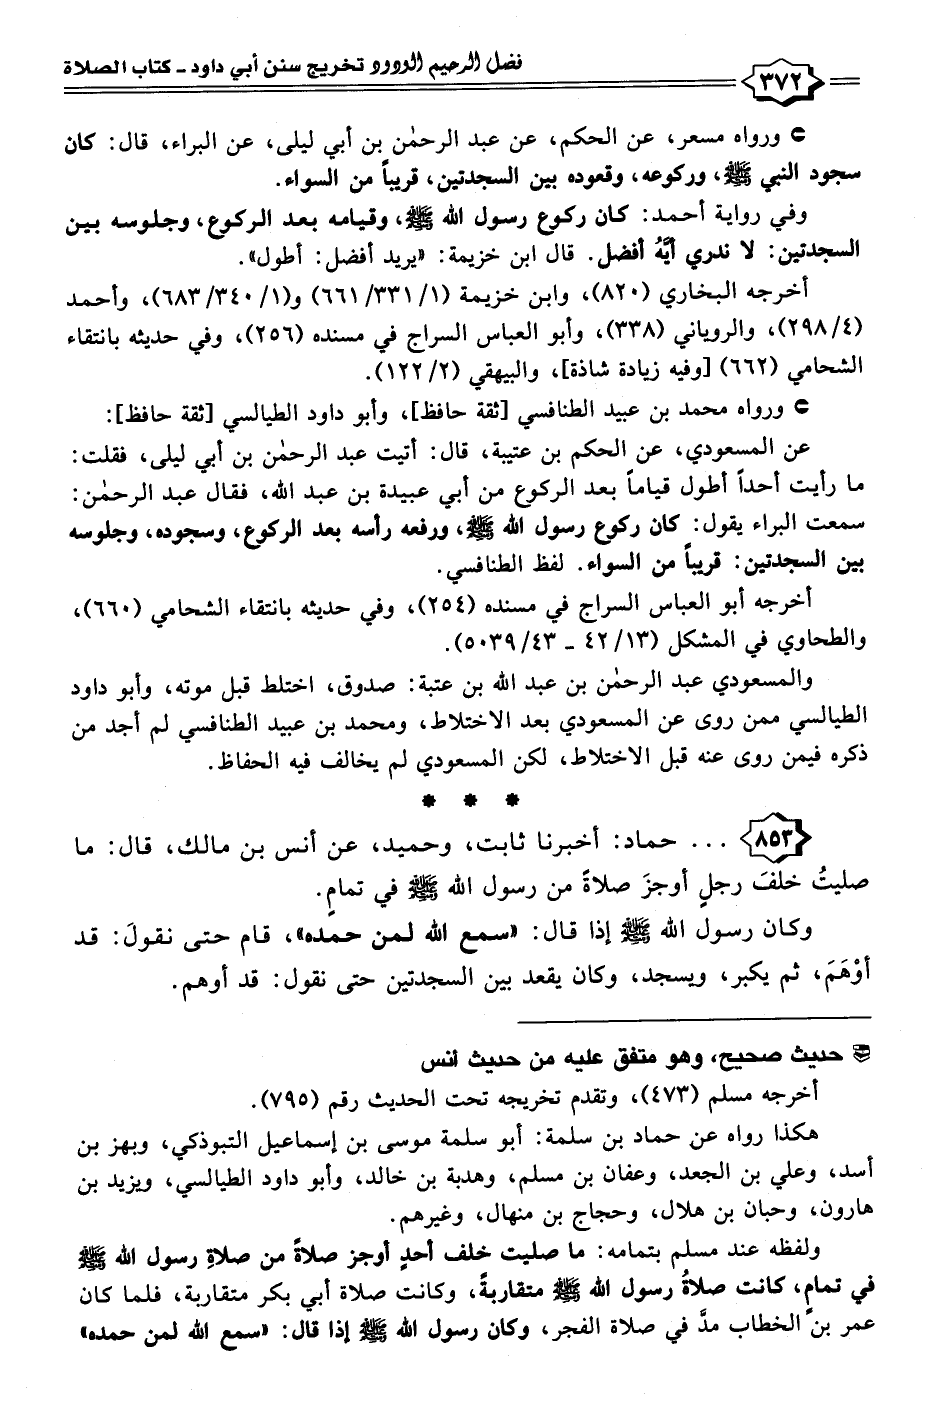 ٣٧٢ فضل الرحيم الودود تخريج سنن أبي داود - كتاب الصلاة
ورواه مسعر، عن الحكم، عن عبد الرحمٰن بن أبي ليلى، عن البراء، قال: كان
سجود النبي ﷺ، وركوعه، وقعوده بين السجدتين، قريباً من السواء.
وفي رواية أحمد: كان ركوع رسول الله ﷺ، وقيامه بعد الركوع، وجلوسه بين
السجدتين: لا ندري أيُّهُ أفضل. قال ابن خزيمة: «يريد أفضل: أطول».
أخرجه البخاري (٨٢٠)، وابن خزيمة (٦٦١/٣٣١/١) و(٦٨٣/٣٤٠/١)، وأحمد
(٢٩٨/٤)، والروياني (٣٣٨)، وأبو العباس السراج في مسنده (٢٥٦)، وفي حديثه بانتقاء
الشحامي (٦٦٢) [وفيه زيادة شاذة]، والبيهقي (١٢٢/٢).
ورواه محمد بن عبيد الطنافسي [ثقة حافظ]، وأبو داود الطيالسي [ثقة حافظ]:
عن المسعودي، عن الحكم بن عتيبة، قال: أتيت عبد الرحمٰن بن أبي ليلى، فقلت:
ما رأيت أحداً أطول قياماً بعد الركوع من أبي عبيدة بن عبد الله، فقال عبد الرحمٰن:
سمعت البراء يقول: كان ركوع رسول الله ﷺ، ورفعه رأسه بعد الركوع، وسجوده، وجلوسه
بين السجدتين: قريباً من السواء. لفظ الطنافسي.
أخرجه أبو العباس السراج في مسنده (٢٥٤)، وفي حديثه بانتقاء الشحامي (٦٦٠)،
والطحاوي في المشكل (٤٢/١٣ - ٥٠٣٩/٤٣).
والمسعودي عبد الرحمٰن بن عبد الله بن عتبة: صدوق، اختلط قبل موته، وأبو داود
الطيالسي ممن روى عن المسعودي بعد الاختلاط، ومحمد بن عبيد الطنافسي لم أجد من
ذكره فيمن روى عنه قبل الاختلاط، لكن المسعودي لم يخالف فيه الحفاظ.
* * *
٨٥٣ ... حماد: أخبرنا ثابت، وحميد، عن أنس بن مالك، قال: ما
صليتُ خلفَ رجلٍ أوجزَ صلاةً من رسول الله ﷺ في تمامٍ.
وكان رسول الله ﷺ إذا قال: «سمع الله لمن حمده»، قام حتى نقولَ: قد
أوْهَمَ، ثم يكبر، ويسجد، وكان يقعد بين السجدتين حتى نقول: قد أوهم.
حديث صحيح، وهو متفق عليه من حديث أنس
أخرجه مسلم (٤٧٣)، وتقدم تخريجه تحت الحديث رقم (٧٩٥).
هكذا رواه عن حماد بن سلمة: أبو سلمة موسى بن إسماعيل التبوذكي، وبهز بن
أسد، وعلي بن الجعد، وعفان بن مسلم، وهدبة بن خالد، وأبو داود الطيالسي، ويزيد بن
هارون، وحبان بن هلال، وحجاج بن منهال، وغيرهم.
ولفظه عند مسلم بتمامه: ما صليت خلف أحدٍ أوجز صلاةً من صلاةِ رسول الله ﷺ
في تمامٍ، كانت صلاةُ رسول الله ﷺ متقاربةً، وكانت صلاة أبي بكر متقاربة، فلما كان
عمر بن الخطاب مدَّ في صلاة الفجر، وكان رسول الله ﷺ إذا قال: «سمع الله لمن حمده»